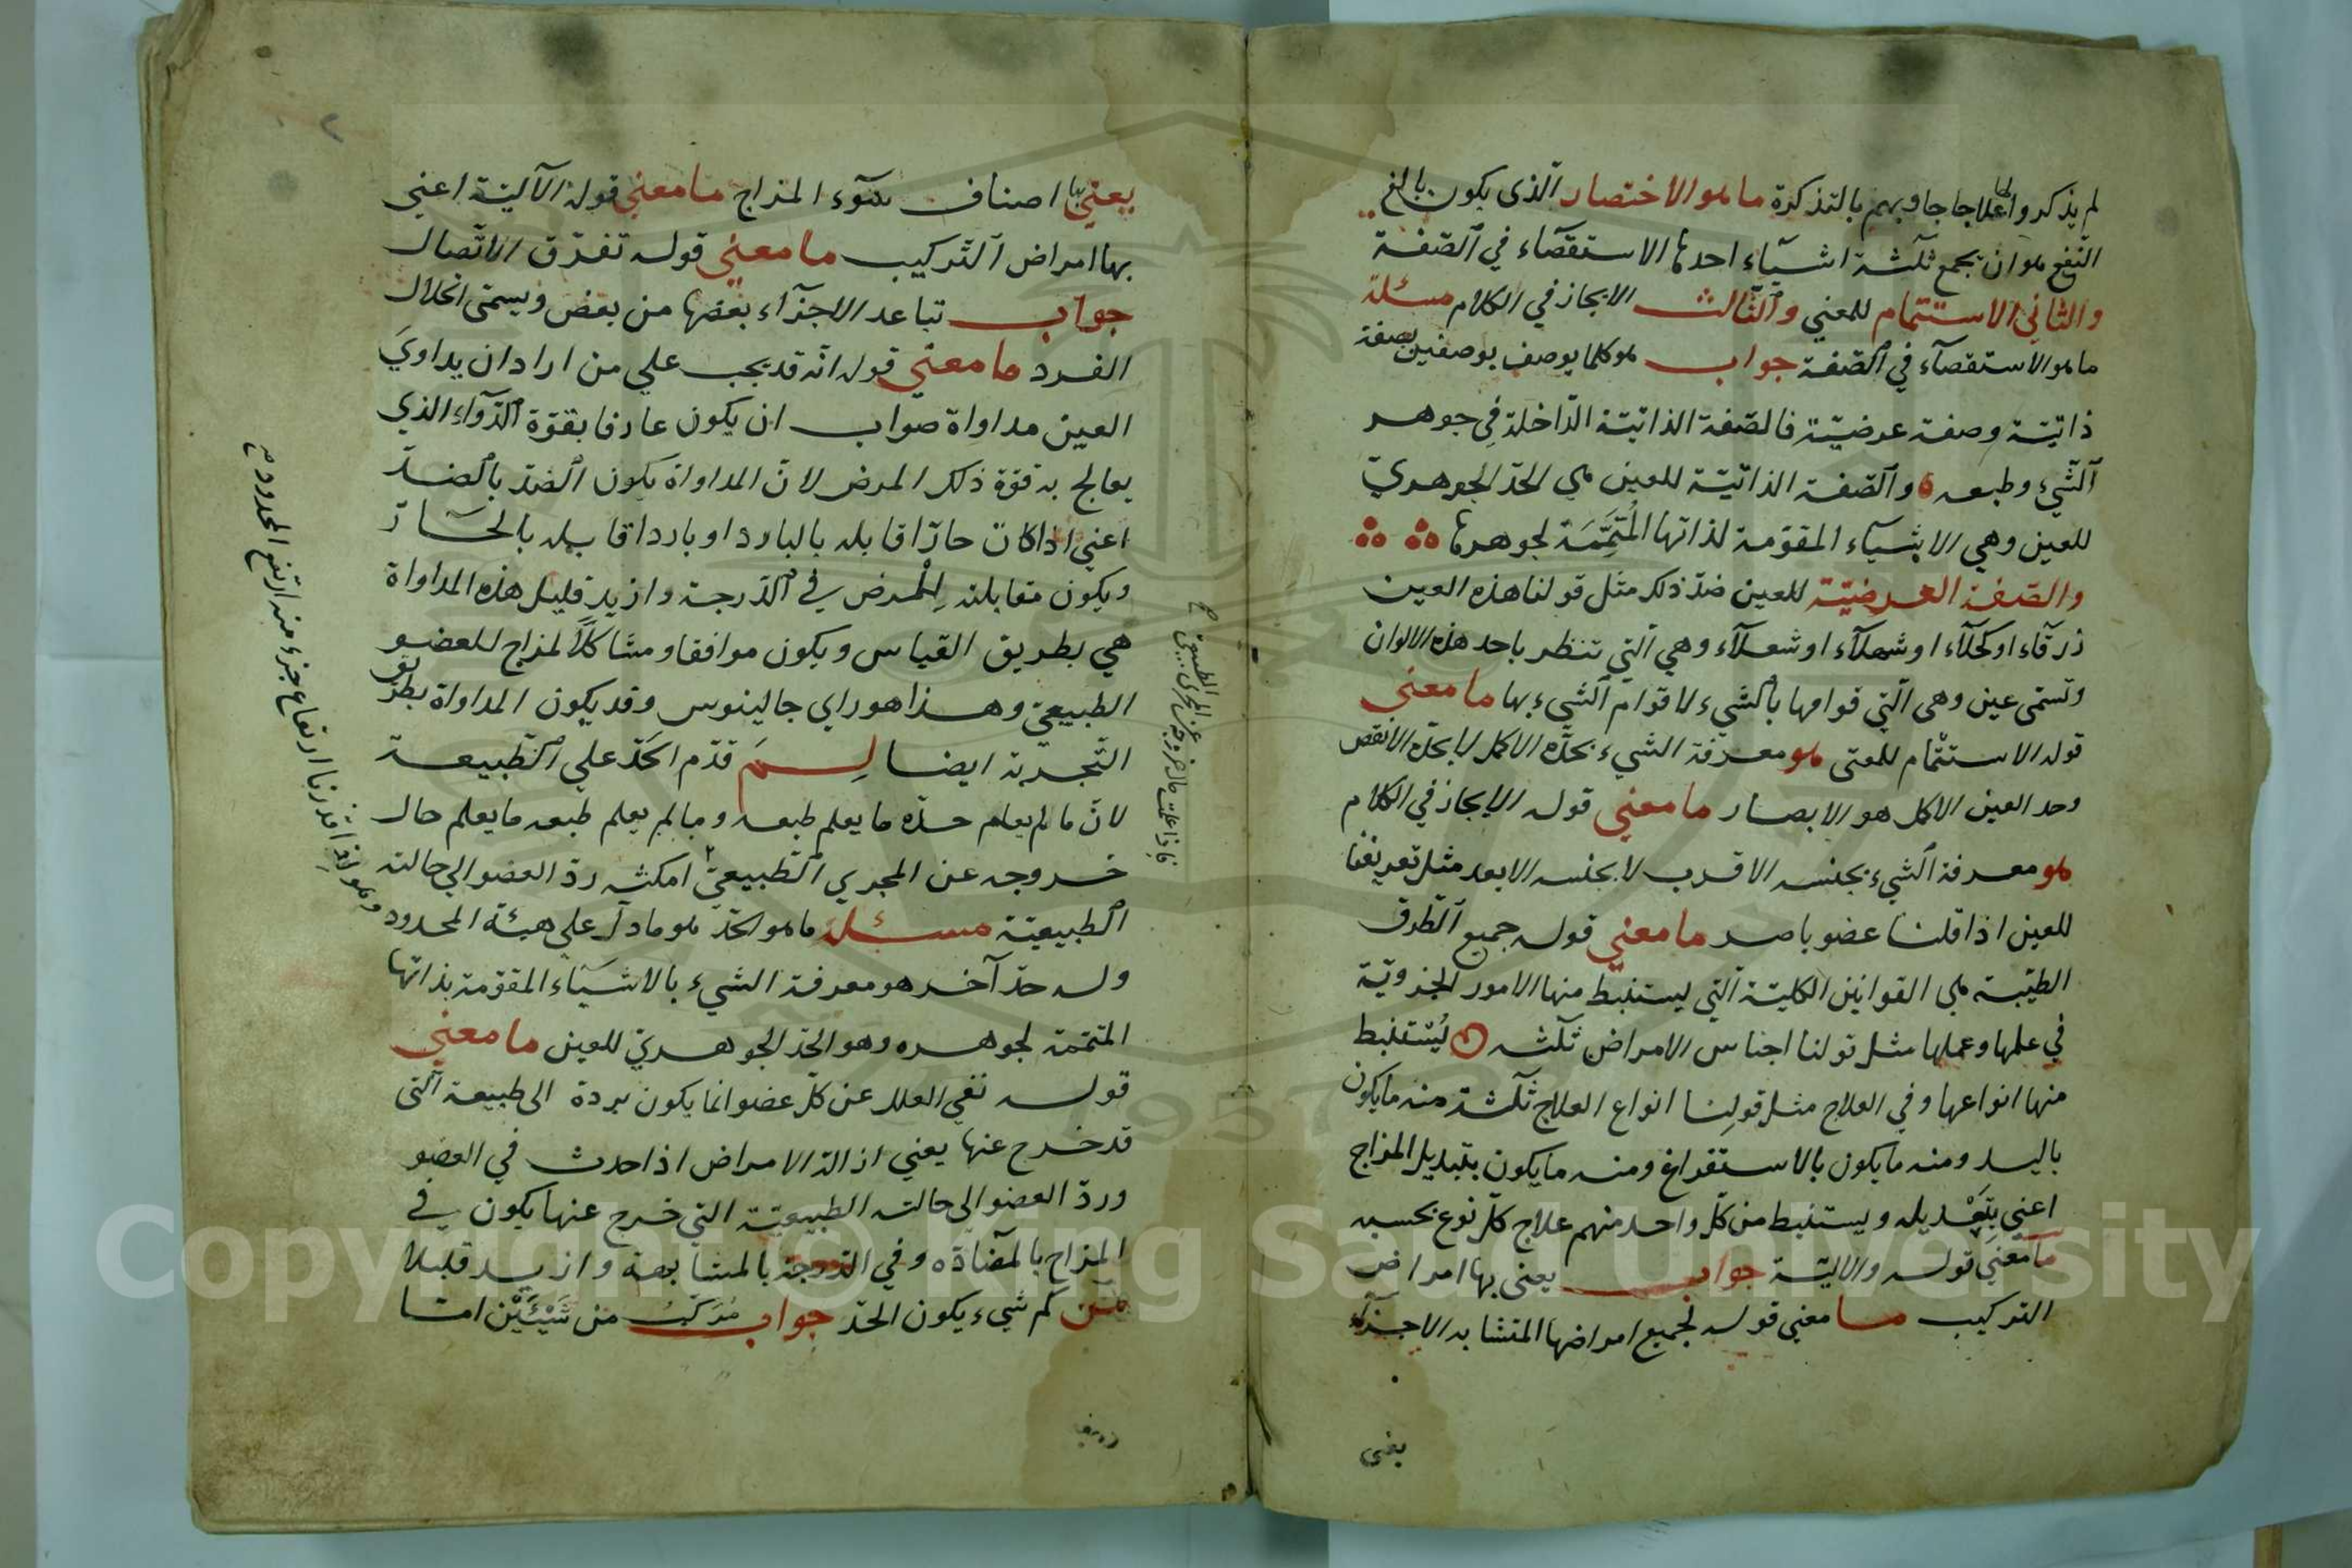 لم يذكروا لها علاجا جاوبهم بالتذكرة ما هو الاختصار الذى يكون بالغ
النفع هو ان يجمع ثلثة اشيآء احدها الاستقصآء في الصّفة
والثاني الاستتمام للمعني والثّالث الايجاز في الكلام مسئلة
ما هو الاستقصآء في الصّفة جواب هو كلما يوصف بوصفين بصفة
ذاتيّة وصفة عرضيّة فالصّفة الذاتيّة الدّاخلة في جوهر
الشّيء وطبعه والصّفة الذاتيّة للعين هي الحدّ الجوهريّ
للعين وهي الاشيآء المقوّمة لذاتها المُتَمِّمَة لجوهرها
والصّفة العرضيّة للعين ضدّ ذلك مثل قولنا هذه العين
زرقآء او كحلآء او شهلآء او شعلآء وهي الّتي تنظر باحد هذه الالوان
وتسمّى عين وهى الّتي قوامها بالشيء لا قوام الشيء بها ما معنى
قوله الاستتمام للمعنى هو معرفة الشيء بحدّه الاكمل لا بحدّه الانقص
وحد العين الاكمل هو الابصار ما معني قوله الايجاز في الكلام
هو معرفة الشيء بجنسه الاقرب لا بجنسه الابعد مثل تعريفنا
للعين اذا قلنا عضو باصر ما معني قوله جميع الطّرق
الطبّيّة هي القوانين الكليّة الّتي يستنبط منها الامور الجزويّة
في علمها وعملها مثل قولنا اجناس الامراض ثلثه يُسْتنبط
منها انواعها وفي العلاج مثل قولِنا انواع العلاج ثلثة منه ما يكون
باليد ومنه ما يكون بالاستفراغ ومنه ما يكون بتبديل المزاج
اعني بِتَعْديله ويستنبط من كلّ واحد منهم علاج كلّ نوع بحسبه
ما معني قوله والاليّة جواب يعنى بها امراض
التركيب ما معني قوله لجميع امراضها المتشابه الاجزآء
يعنى
يعني بها اصناف سوء المزاج ما معني قوله الآليّة اعني
بها امراض التّركيب ما معني قوله تفرّق الاتّصال
جواب تباعد الاجزآء بعضها من بعض ويسمّى انحلال
الفرد ما معني قوله انّه قد يجب علي من اراد ان يداويَ
العين مداواة صواب ان يكون عارفا بقوّة الدّواء الذي
يعالج به قوّة ذلك المرض لانّ المداواة يكون الضّد بالضدّ
اعني اذا كان حارّا قابله بالبارد او باردا قابله بالحَارّ
ويكون مقابلته لِلْمرض في الدّرجة وازيد قليل هذه المداواة
هي بطريق القياس ويكون موافقا ومشاكلاً لمزاج للعضو
الطبيعيّ وهذا هو راي جالينوس وقد يكون المداواة بطريق
التّجربة ايضا لِمَ قدّم الحدّ علي الطّبيعة
لانّ ما لم يعلم حدّه ما يعلم طبعه وما لم يعلم طبعه ما يعلم حال
خروجه عن المجري الطّبيعيّ امكنه ردّ العضو الي حالته
الطبيعيّة مسئلة ما هو الحدّ هو ما دلّ علي هيئة المحدود
وله حدّ آخر هو معرفة الشيء بالاشيآء المقوّمة بذاتها
المتمّمة لجوهره وهو الحدّ الجوهريّ للعين ما معني
قوله نفي العلل عن كلّ عضو انما يكون بردة الى طبيعة الّتى
قد خرج عنها يعني ازالة الامراض اذا حدث في العضو
وردّ العضو الى حالته الطبيعيّة التي خرج عنها يكون في
المزاج بالمضآدّه وفي الدّرجة بالمشابهة وازيد قليلا
من كم شيء يكون الحدّ جواب مُرَكّبُ من شَيْئَيْن امّا
فاذا علمت حال خروجه عن المجرى الطبيعي
وهو انه اذا ارتفع جزء منه ارتفع المحدود